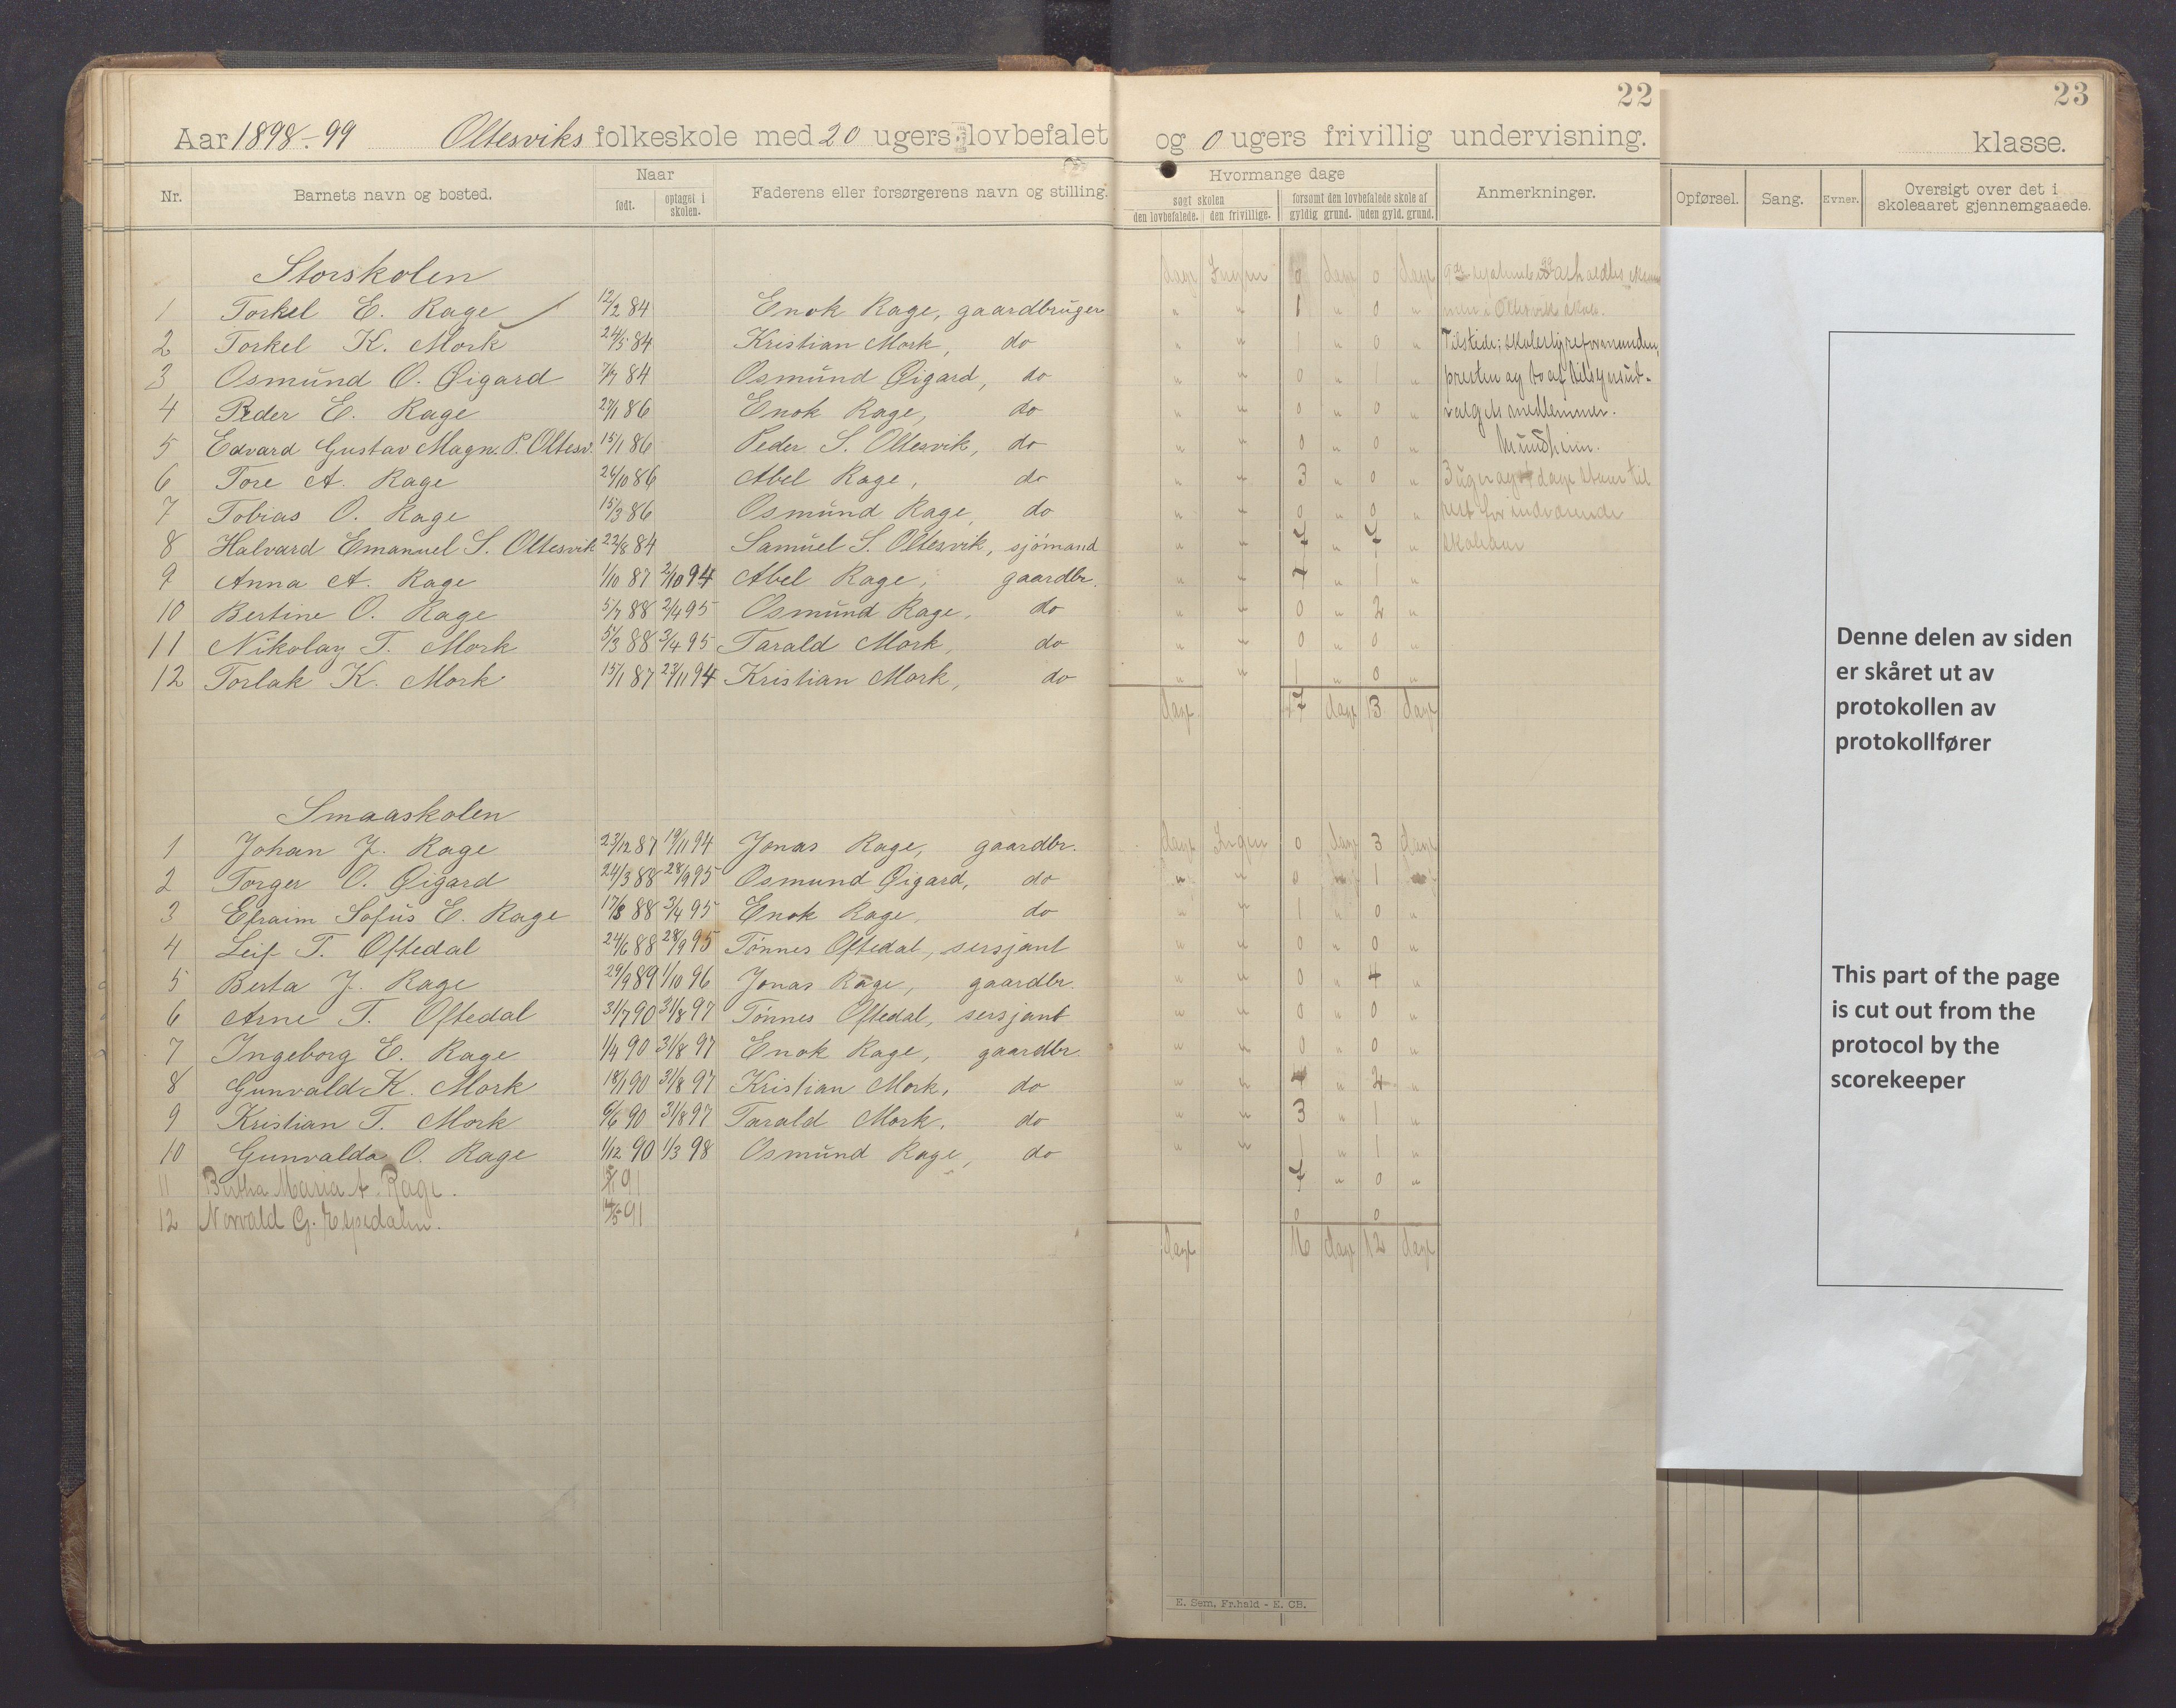 22
23
Aar 1898-99 Oltesviks folkeskole med 20 ugers lovbefalet og 0 ugers frivillig undervisning. klasse.
Nr. Barnets navn og bosted. Naar født. optaget i skolen. Faderens eller forsørgerens navn og stilling. Hvormange dage søgt skolen den lovbefalede. den frivillige. forsømt den lovbefalede skole af gyldig grund. uden gyld. grund. Anmerkninger. Opførsel. Sang. Evner. Oversigt over det i skoleaaret gjennemgaaede.
Storskolen dage Ingen 0 dage 0 dage
1 Torkel E. Rage 12/2 84 Enok Rage, gaardbruger " " 1 " 0 " i Oltesvik skole.
2 Torkel K. Mork 24/5 84 Kristian Mork, do " " 1 " 0 " Tilstede: skolestyreformanden,
3 Osmund O. Øigard 7/7 84 Osmund Øigard, do " " 0 " 1 " presten og to af tilsynsud-
4 Peder E. Rage 27/1 86 Enok Rage, do " " 0 " 0 " valgets medlemmer.
5 Edvard Gustav Magn. P. Oltesv. 15/1 86 Peder S. Oltesvik, do " " 0 " 0 " Mundheim.
6 Tore A. Rage 26/10 86 Abel Rage, do " " 3 " 0 " 3 uger og dage
7 Tobias O. Rage 15/3 86 Osmund Rage, do " " 0 " 0 " rest for indværende
8 Halvard Emanuel S. Oltesvik 22/8 84 Samuel S. Oltesvik, sjömand " " 7 " 7 " skoleaar
9 Anna A. Rage 1/10 87 2/10 94 Abel Rage, gaardbr. " " 7 " 1 "
10 Bertine O. Rage 5/7 88 2/4 95 Osmund Rage, do " " 0 " 2 "
11 Nikolay T. Mork 5/3 88 3/4 95 Tarald Mork, do " " 0 " 0 "
12 Torlak K. Mork 15/1 87 23/11 94 Kristian Mork, do " " 1 " 0 "
dage 17 dage 13 dage
Smaaskolen
1 Johan J. Rage 23/12 87 19/11 94 Jonas Rage, gaardbr. dage Ingen 0 dage 3 dage
2 Torger O. Øigard 24/3 88 28/9 95 Osmund Øigard, do " " 0 " 1 "
3 Efraim Sofus E. Rage 17/8 88 3/4 95 Enok Rage, do " " 1 " 0 "
4 Leif T. Oftedal 24/6 88 28/9 95 Tönnes Oftedal, sersjant " " 0 " 0 "
5 Berta J. Rage 29/9 89 1/10 96 Jonas Rage, gaardbr. " " 0 " 4 "
6 Arne T. Oftedal 31/7 90 31/8 97 Tönnes Oftedal, sersjant " " 0 " 0 "
7 Ingeborg E. Rage 1/4 90 31/8 97 Enok Rage, gaardbr. " " 0 " 0 "
8 Gunvald K. Mork 18/1 90 31/8 97 Kristian Mork, do " " 4 " 2 "
9 Kristian T. Mork 6/6 90 31/8 97 Tarald Mork, do " " 3 " 1 "
10 Gunvalda O. Rage 1/12 90 1/3 98 Osmund Rage, do " " 1 " 1 "
11 Bertha Maria A. Rage. 91 7 " 0 "
12 Norvald G. Espedalen. 91 0 0
dage 16 dage 12 dage
E. Sem, Fr.hald - E. CB.
Denne delen av siden
er skåret ut av
protokollen av
protokollfører
This part of the page
is cut out from the
protocol by the
scorekeeper